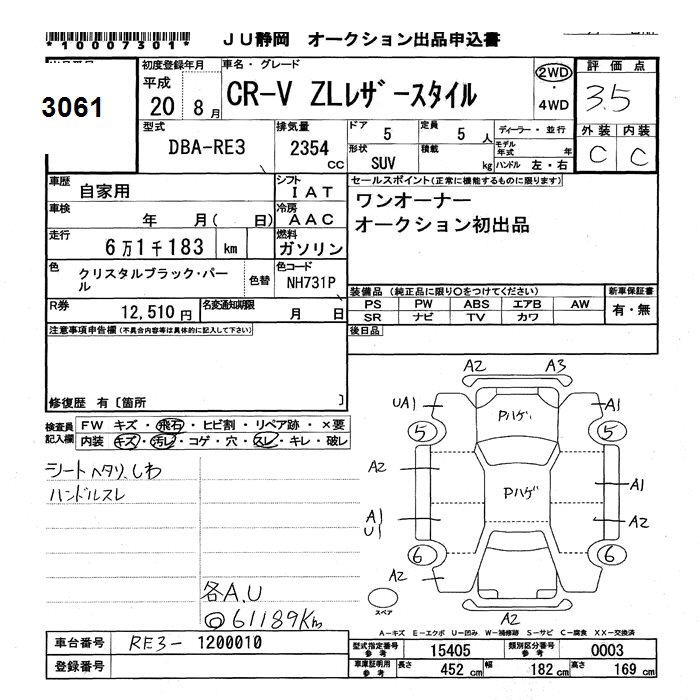 *10007301* JU静岡 オークション出品申込書
3061
初度登録年月 車名・グレード 評価点
平成 20 8月 CR-V ZLレザースタイル 2WD・4WD 3.5
外装 内装
C C
型式 排気量 ドア 定員 ディーラー・並行
DBA-RE3 2354 CC 5 5 人 モデル年式 年
形状 SUV 積載 kg ハンドル 左・右
車歴 自家用 シフト IAT セールスポイント(正常に機能するものに限ります)
車検 年 月( 日) 冷房 AAC ワンオーナー
オークション初出品
走行 6万1千183 km 燃料 ガソリン
色 クリスタルブラック・パール 色替 色コード NH731P
装備品 (純正品に限り○をつけてください) 新車保証書
PS PW ABS エアB AW 有・無
SR ナビ TV カワ
R券 12,510円 名変通知期限 月 日
注意事項申告欄(不具合内容等は具体的に記入して下さい) 後日品
修復歴 有〔箇所 〕
検査員記入欄 FW キズ・飛石・ヒビ割・リペア跡・×要
内装 キズ・汚レ・コゲ・穴・スレ・キレ・破レ
シートヘタリ、しわ
ハンドルスレ
各A.U
◎61189Km
A2 A3
UA1 A1
Pハゲ
5 5
A2
Pハゲ A1
A1 A2
U1
6 6
A2
スペア
A2
A-キズ E-エクボ U-凹み W-補修跡 S-サビ C-腐食 XX-交換済
車台番号 RE3-1200010 型式指定番号 参考 15405 類別区分番号 参考 0003
登録番号 車庫証明用 参考 長さ 452 cm 幅 182 cm 高さ 169 cm